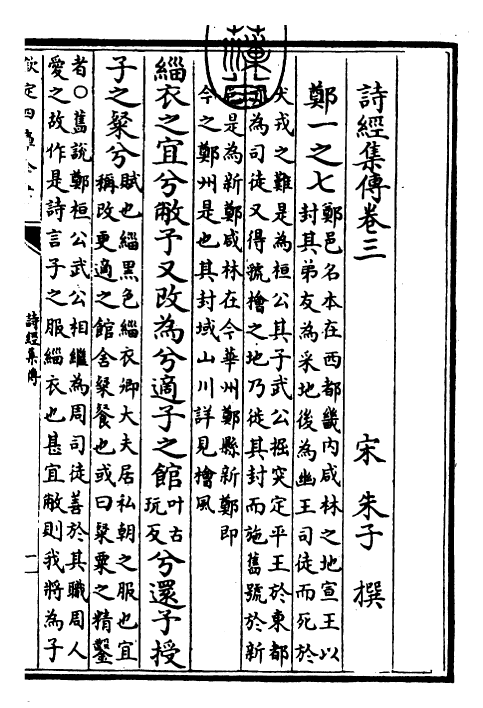 詩經集傳卷三
宋 朱子 撰
鄭一之七 鄭邑名本在西都畿內咸林之地宣王以
封其弟友為采地後為幽王司徒而死於
犬戎之難是為桓公其子武公掘突定平王於東都
亦為司徒又得虢檜之地乃徙其封而施舊號於新
邑是為新鄭咸林在今華州鄭縣新鄭即
今之鄭州是也其封域山川詳見檜風
緇衣之宜兮敝予又改為兮適子之館叶古玩反兮還予授
子之粲兮 賦也緇黑色緇衣卿大夫居私朝之服也宜
稱改更適之館舍粲餐也或曰粲粟之精鑿
者○舊說鄭桓公武公相繼為周司徒善於其職周人
愛之故作是詩言子之服緇衣也甚宜敝則我將為子
欽定四庫全
詩經集傳
一